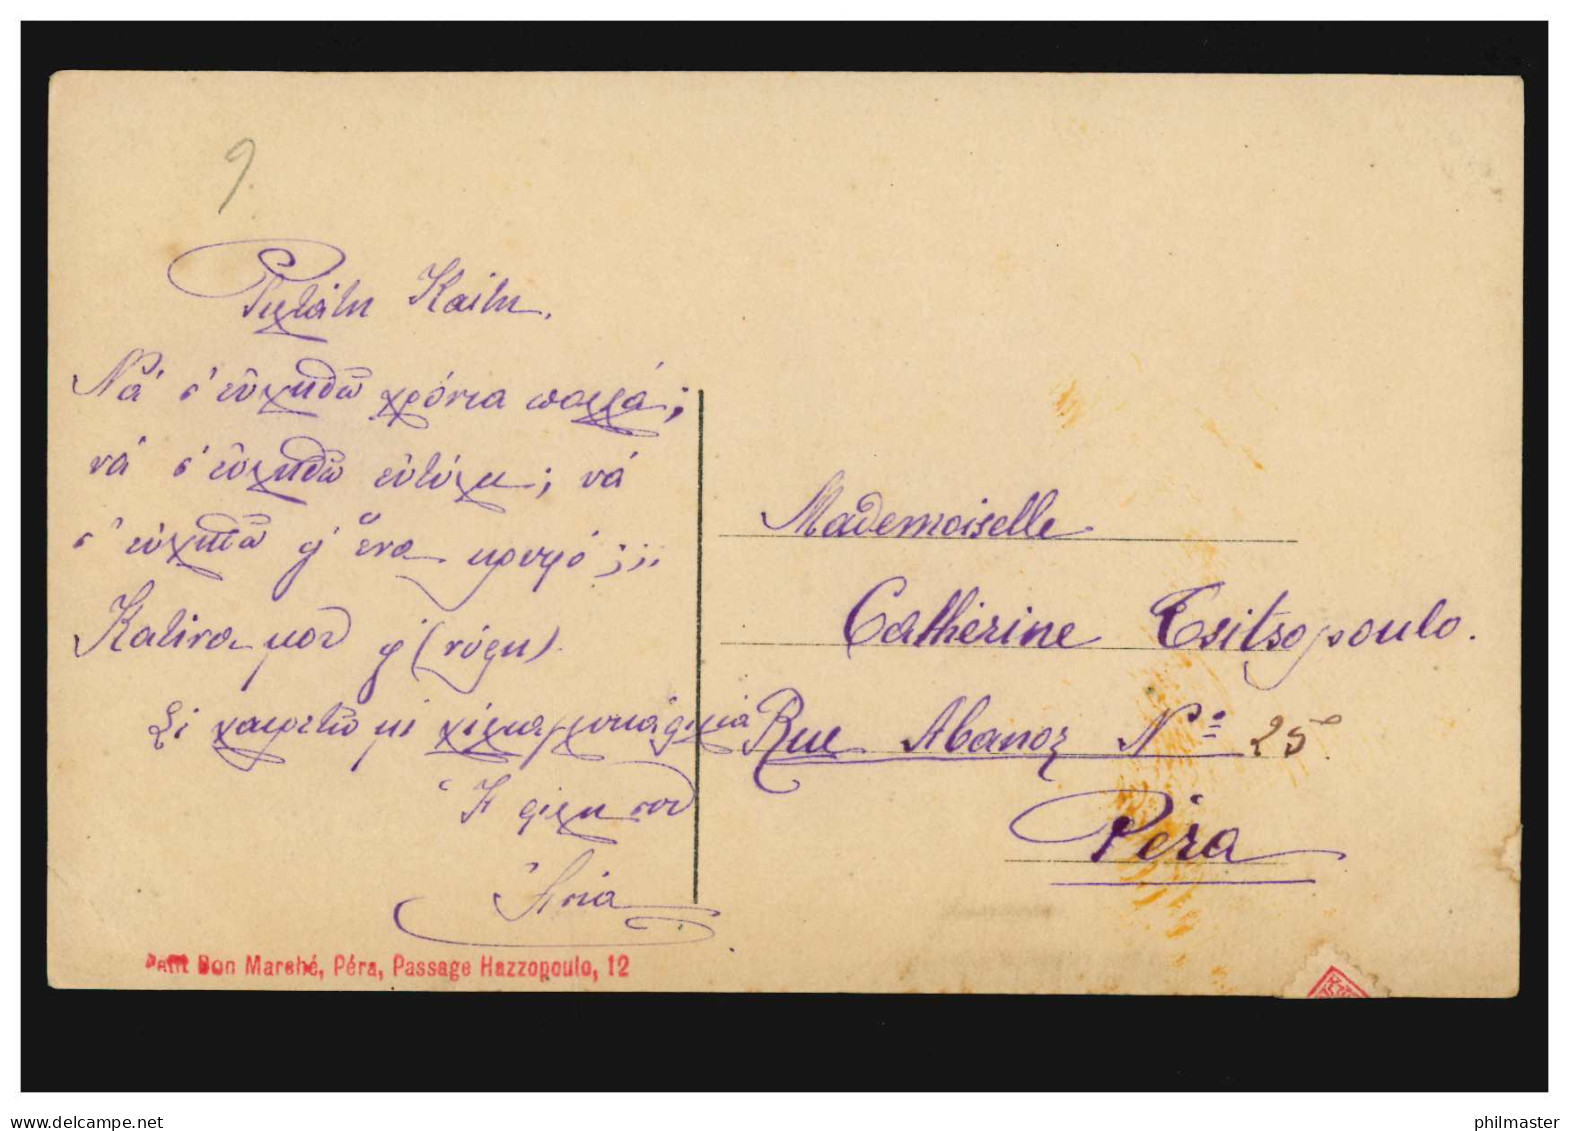 9
Φιλτάτη Καίτη.
Νά σ' εὐχηθῶ χρόνια πολλά;
νά σ' εὐχηθῶ εὐτύχη; νά
σ' εὐχηθῶ φ' ἕνα κρυφό;;..
Κατίνα μου φ' (νύφη).
Σέ χαιρετῶ μέ
Ἡ φίλη σου
Mademoiselle
Catherine Tsitsopoulo.
Rue Abanoz Nº 25
Péra
Petit Bon Marché, Péra, Passage Hazzopoulo, 12
delcampe.net
philmaster